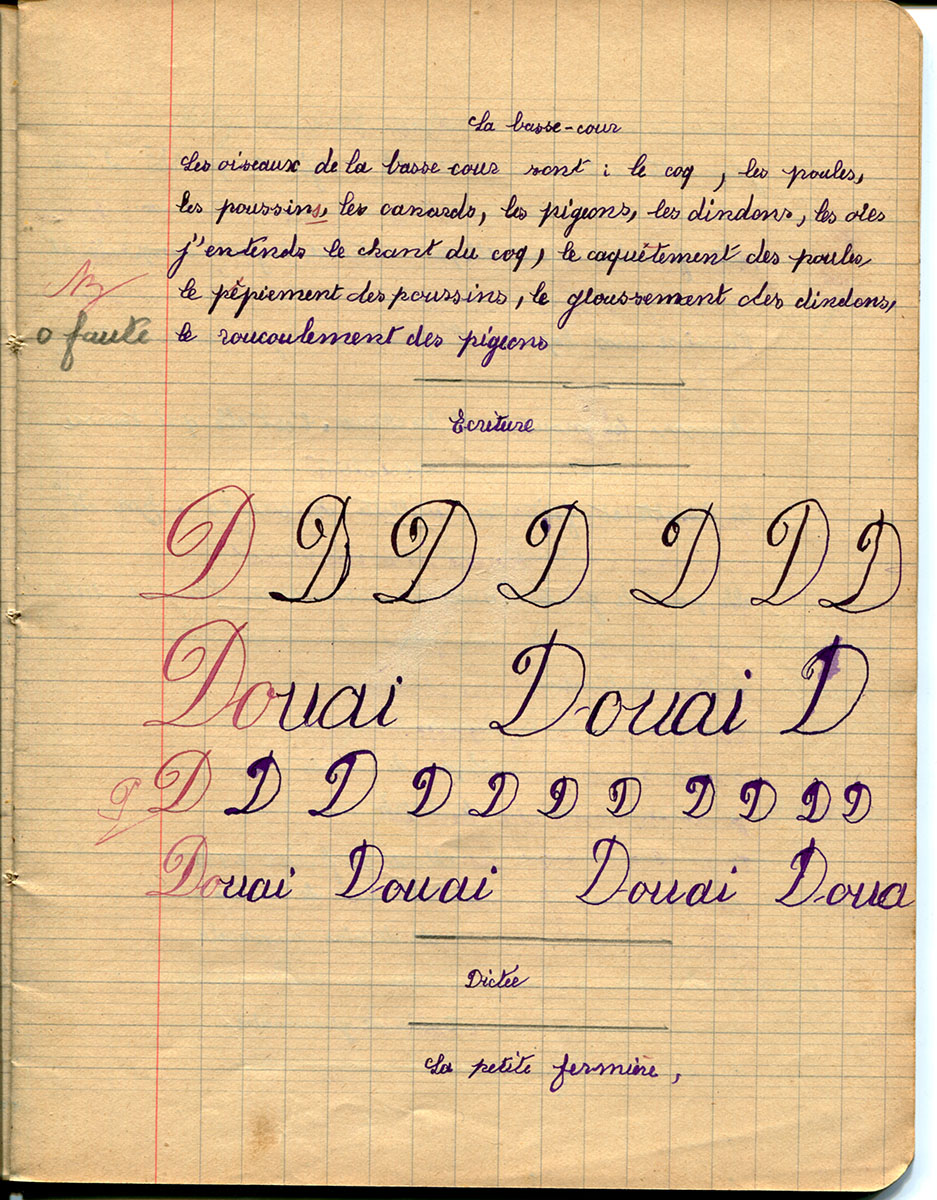 La basse-cour
Les oiseaux de la basse-cour sont : le coq, les poules,
les poussins, les canards, les pigeons, les dindons, les oies
j'entends le chant du coq, le caquètement des poules,
le pépiement des poussins, le gloussement des dindons,
0 faute
le roucoulement des pigeons
Ecriture
D D D D D D D
Douai Douai D
D D D D D D D D D D D
Douai Douai Douai Doua
Dictée
La petite fermière,